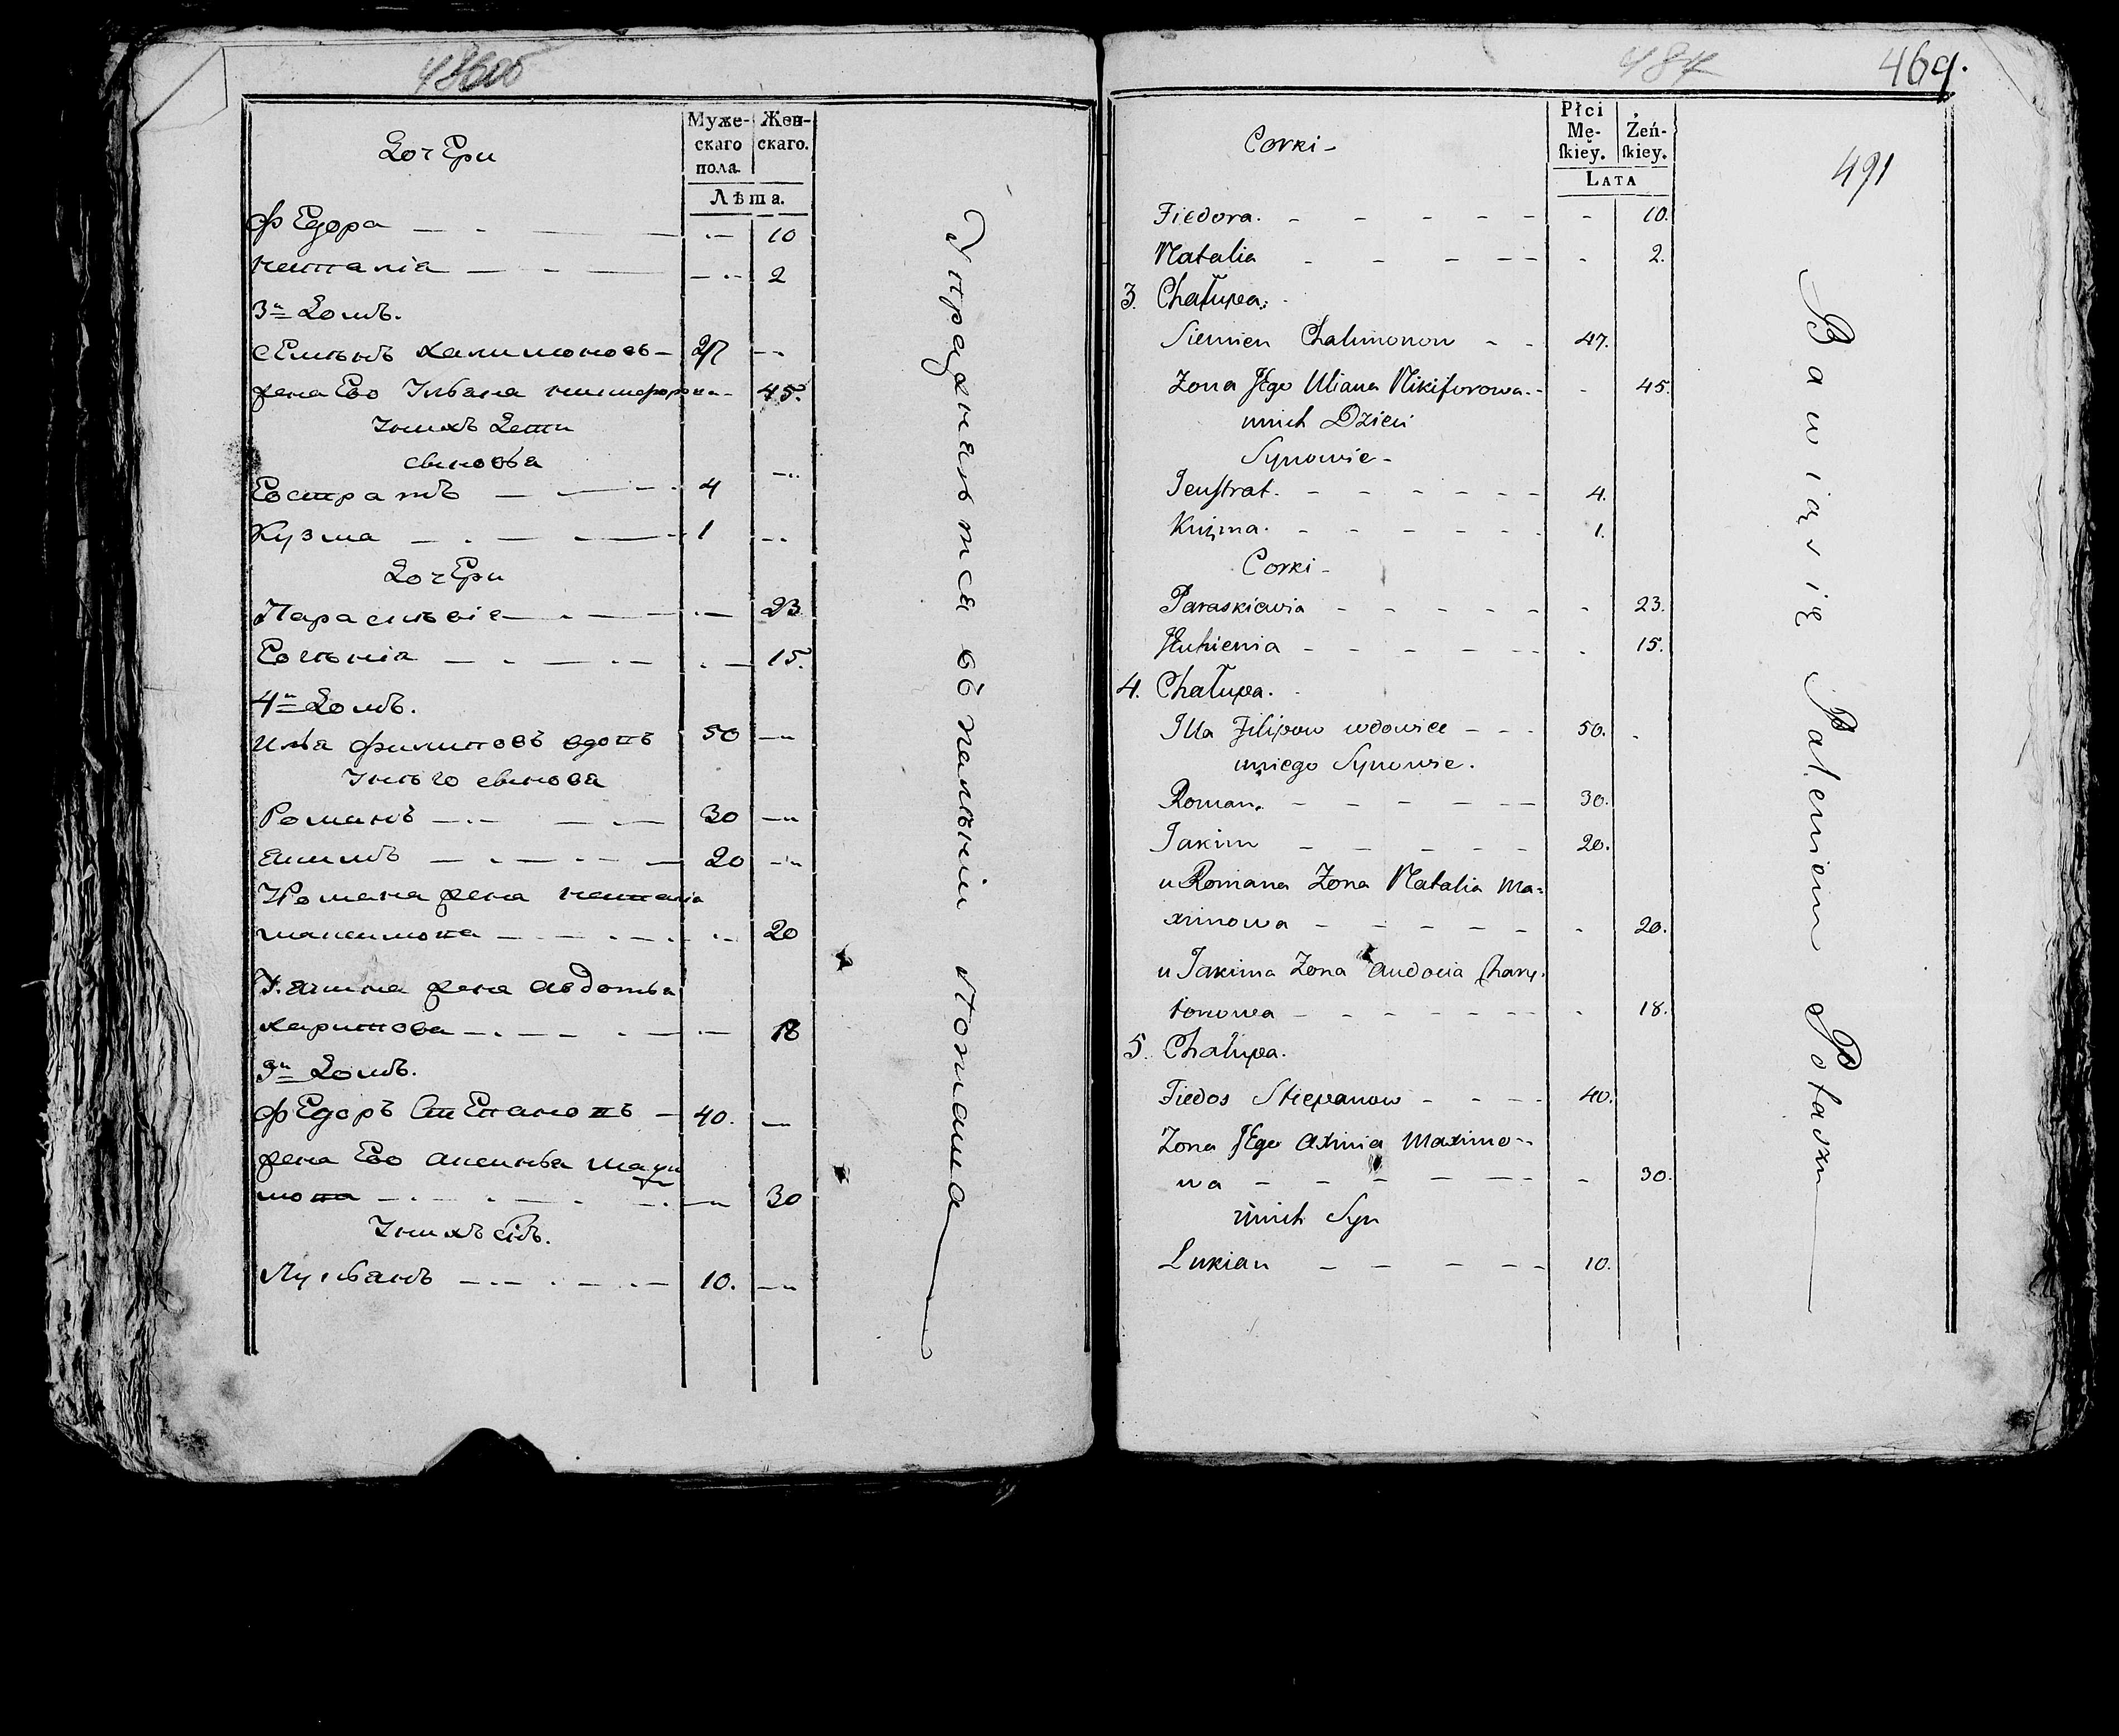 Дочери
Муже-
скаго
пола.
Жен-
скаго.
Лѣта.
ФЕдора — - — -- 10
наталіа — - — -- 2
3й Домъ.
сЕмѣнъ халимоновъ — 47 --
жена Ево Ульана никифорова - 45.
Унихъ Дети
сынова --
Еостратъ — 4
Кузма — 1 --
ДочЕри
Парасковіа — 23
Еогѣніа — 15.
4й Домъ.
илья филиповъ вдовъ 50 --
Унѣго сынова
Романъ — 30 --
акимъ — 20 --
УРомана жена наталіа
максимова — 20
У акима жена авдотьа
харитова — 18
5й Домъ.
ФЕдоръ СтЕпановъ — 40. --
жена Ево аксинья макси
мова — 30
Унихъ снъ.
Лукьанъ — 10. --
Упражнаютса въ паленіи Поташа
487
469.
491
Corki -
Płci
Mę-
ſkiey.
Żeń-
ſkiey.
LATA
Fiedora. - - - - - - 10.
Natalia - - - - - - 2.
3. Chałupa.
Siemien Chalimonow - - 47.
Zona JEgo Uliana Nikiforowa. - - 45.
unich Dzieci
Synowie -
Jeustrat. - - - - - - 4.
Kuzma. - - - - - - 1.
Corki -
Paraskiewia - - - - - - 23.
JEuhienia - - - - - - 15.
4. Chałupa.
Illa Filipow wdowiec - - - 50. -
uniego Synowie.
Roman. - - - - - - 30.
Jakim - - - - - 20.
u Romana Zona Natalia Ma=
ximowa - - - - - - 20.
u Jakima Zona Audocia Chary.
tonowa - - - - - - 18.
5. Chałupa.
Fiedos Stiepanow - - - - 40.
Zona JEgo Axinia Maximo--
wa - - - - - - 30.
unich Syn
Lukian - - - - - 10.
Bawią się Paleniem Potaszu